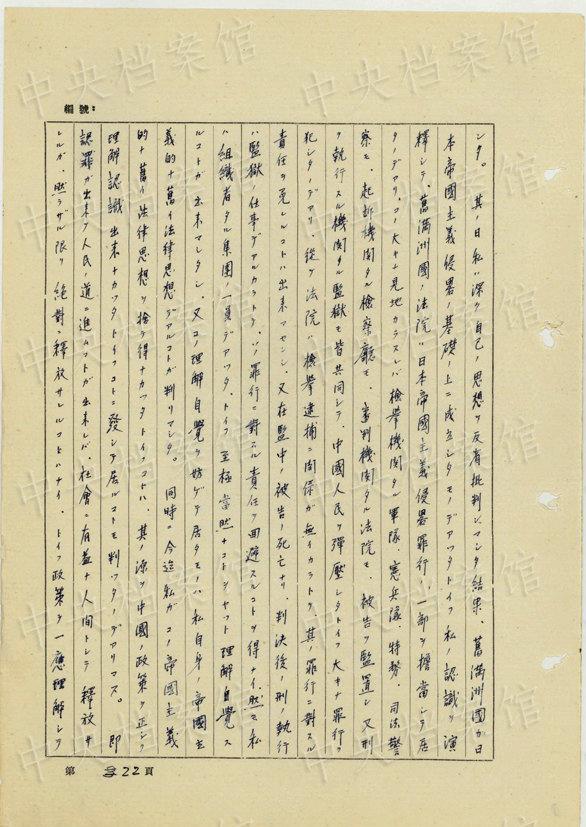 編號:
シタ。 其ノ日私ハ深ク自己ノ思想ヲ反省批判シマシタ結果、舊滿洲國カ日
本帝國主義侵畧ノ基礎ノ上ニ成立シタモノデアツタトイフ私ノ認識ヲ演
釋シテ、舊滿洲國ノ法院ハ日本帝國主義侵畧罪行ノ一部ヲ擔當シテ居
ターデアリ、コノ大キナ見地カラスレバ檢擧機関タル軍隊、憲兵隊、特務、司法警
察モ、起訴機関タル檢察廳モ、審判機関タル法院モ、被告ヲ監置シ又刑
ヲ執行スル機関タル監獄モ皆共同シテ、中國人民ヲ彈壓シタトイフ大キナ罪行ヲ
犯シターデアリ、從ツテ法院ハ檢擧逮捕ニ関係ガ無イカラトテ其ノ罪行ニ對スル
責任ヲ免レルコトハ出來マセンシ、又在監中ノ被告ノ死亡ナリ、判決後ノ刑ノ執行
ハ監獄ノ仕事デアルカラトテ、ソノ罪行ニ對スル責任ヲ回避スルコトヲ得ナイ、然モ私
ハ組織者タル集團ノ一員デアツタ、トイフ至極當然ナコトシヤツト理解自覺ス
ルコトガ出來マシタシ、又コノ理解自覺ヲ妨ゲテ居タモノハ私自身ノ帝國主
義的ナ舊イ法律思想デアルコトガ判リマシタ。 同時ニ今迄私ガコノ帝國主義
的ナ舊イ法律思想ヲ捨テ得ナカツタトイフコトハ、其ノ源ヲ中國ノ政策ヲ正シク
理解認識出來ナカツタトイフコトニ發シテ居ルコトモ判ツターデアリマス。 即
認罪ガ出來テ人民ノ道ニ進ムコトガ出來レバ、社會ニ有益ナ人間トシテ釋放サ
レルガ、然ラザル限リ絕對ニ釋放サレルコトハナイ、トイフ政策ヲ一應理解シテ
第 322頁
中央档案馆